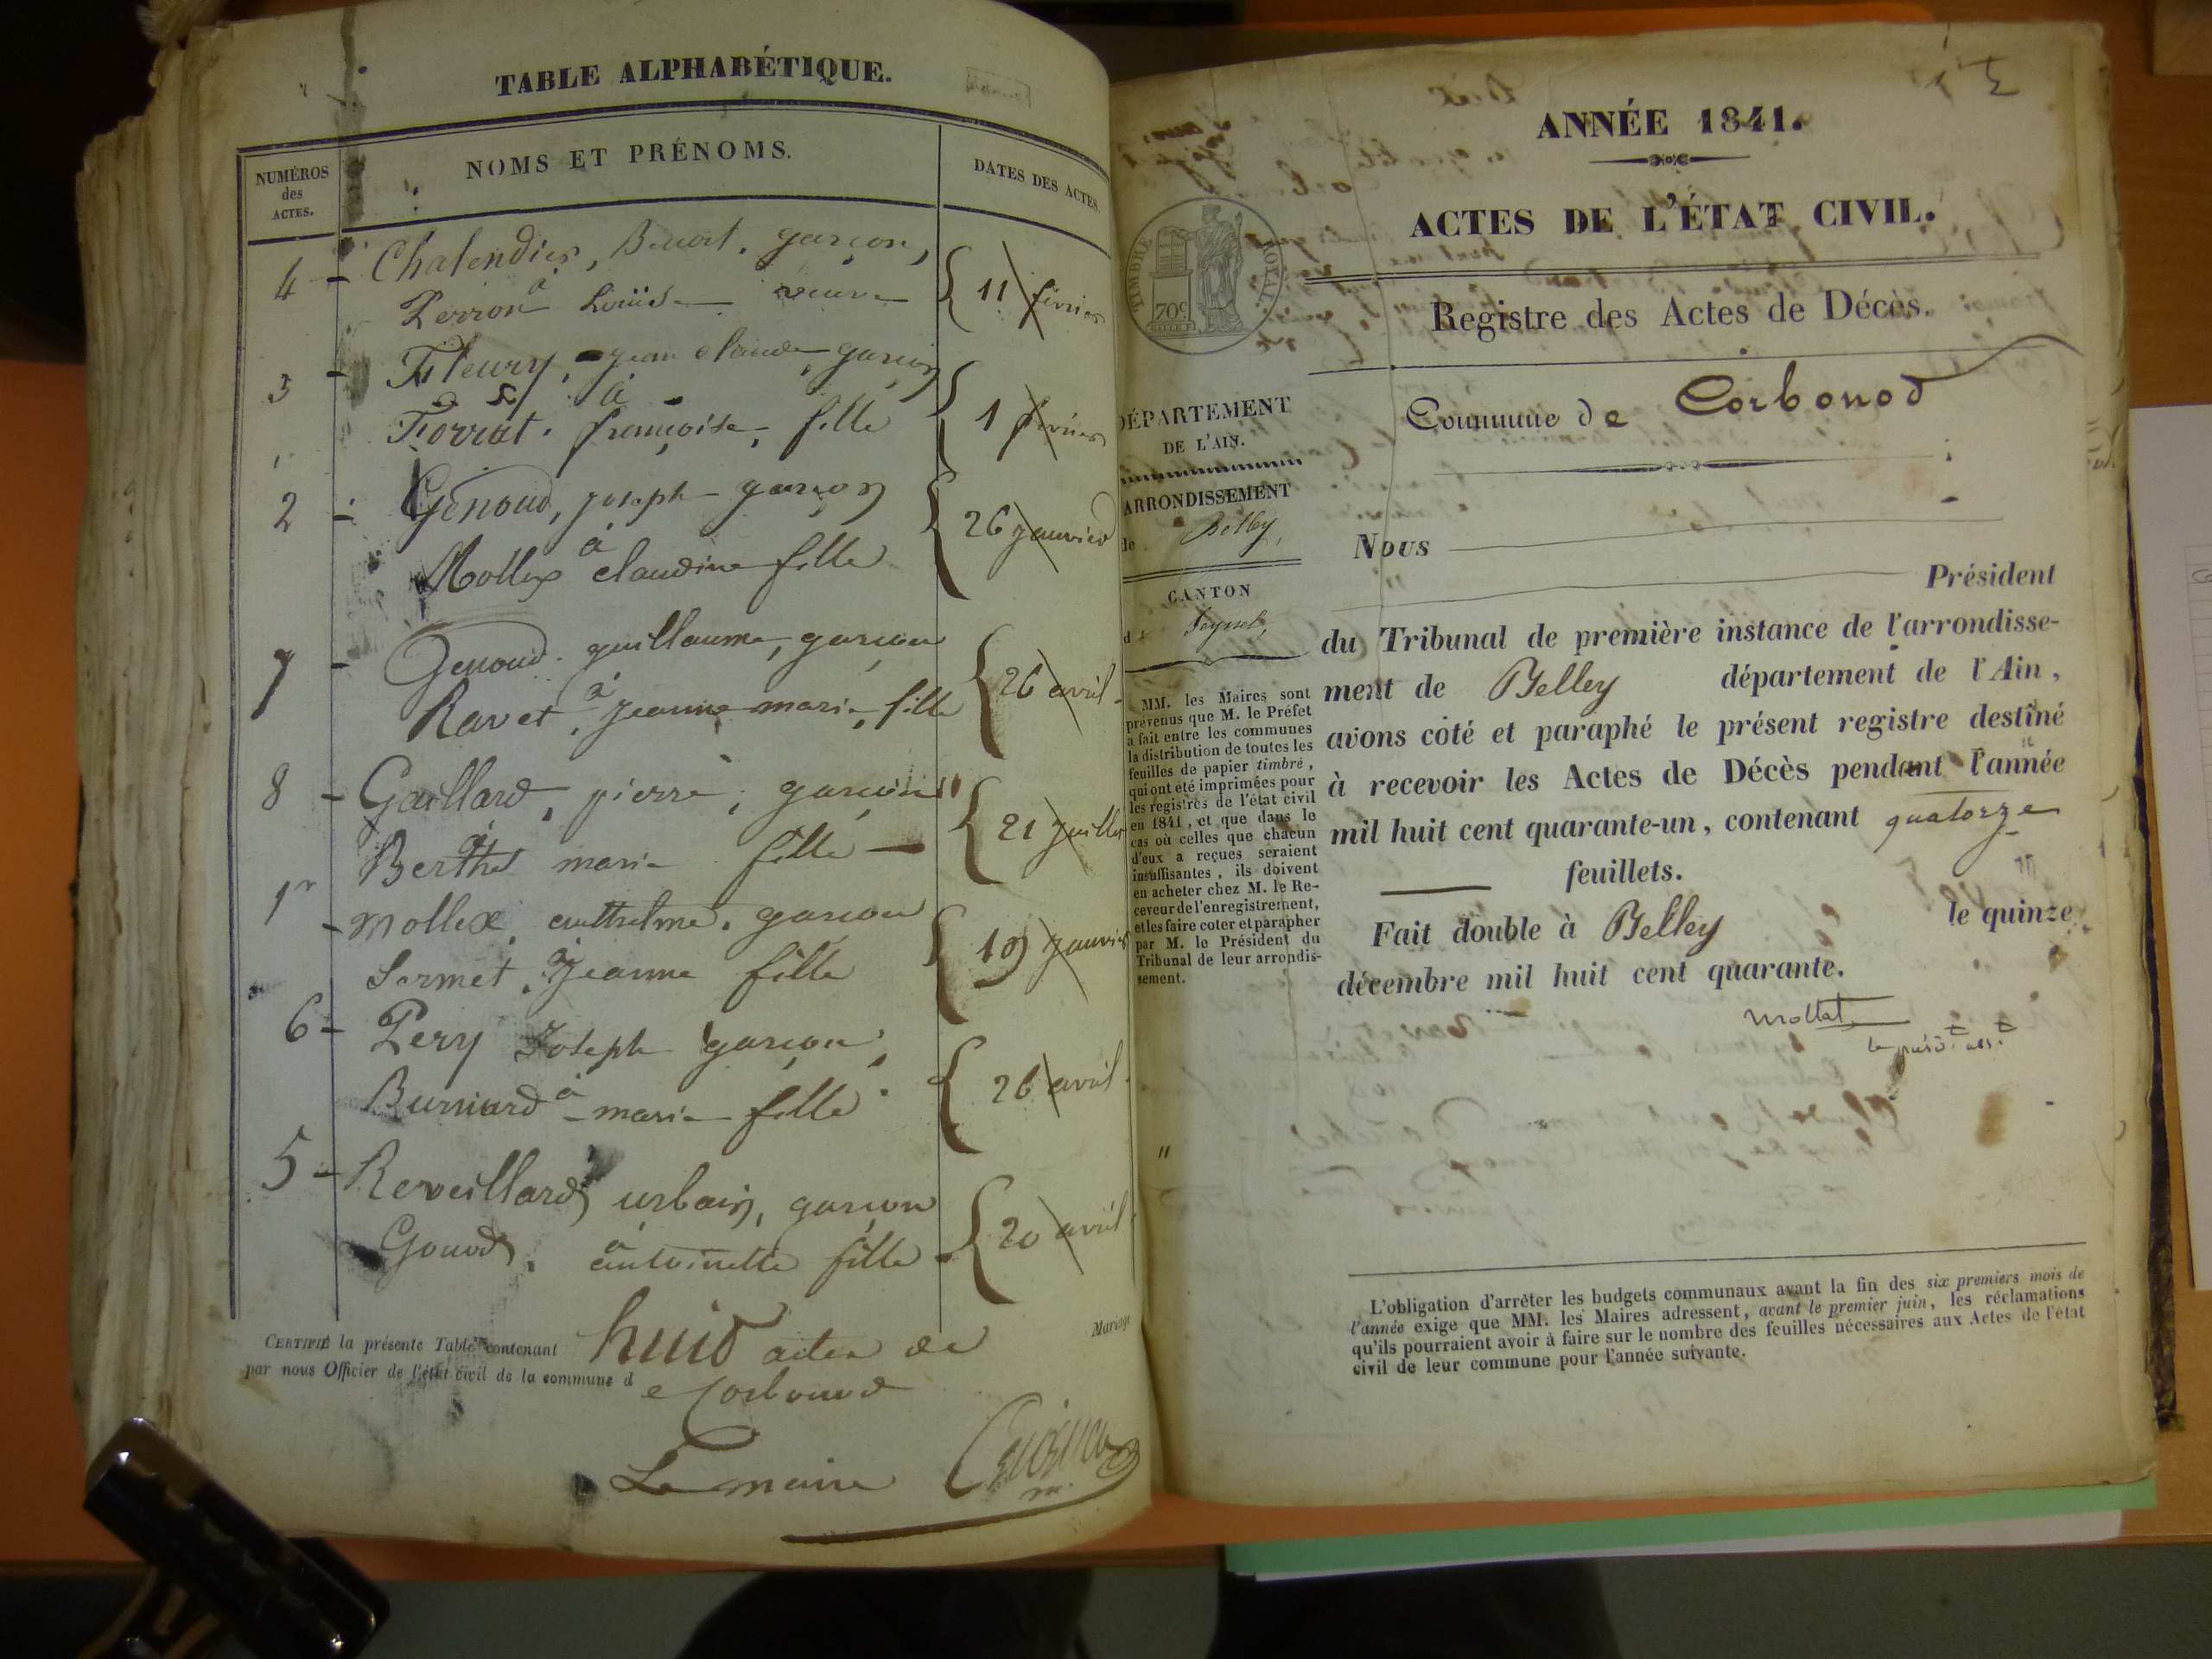 TABLE ALPHABÉTIQUE.
NUMÉROS
des
ACTES.
NOMS ET PRÉNOMS.
DATES DES ACTES.
4 - Chalendier, Benoit, garçon,
à
Perron Louise veuve
11 février
3 - Fleury, jean claude garçon
à
Forrat françoise, fille
1 février
2 - Génoud, joseph garçon
à
Mollex claudine fille
26 janvier
7 - Genoud guillaume, garçon
à
Ravet, jeanne marie, fille
26 avril
8 - Gaillard, pierre, garçon
à
Berthet marie fille
21 juillet
1er - Mollex anthelme, garçon
à
Sermet, jeanne fille
19 janvier
6 - Pery Joseph garçon,
à
Burnard marie fille
26 avril
5 - Reveillard urbain, garçon
à
Gonod, antoinette fille
20 avril
CERTIFIÉ la présente Table contenant huit actes de
par nous Officier de l'état civil de la commune d e Corbonod
Mariage
Le maire
ANNÉE 1841.
ACTES DE L'ÉTAT CIVIL.
TIMBRE ROYAL.
70c
Registre des Actes de Décès.
DÉPARTEMENT
DE L'AIN.
ARRONDISSEMENT
de Belley,
CANTON
de Seyssel,
MM. les Maires sont
prévenus que M. le Préfet
a fait entre les communes
la distribution de toutes les
feuilles de papier timbré,
qui ont été imprimées pour
les registres de l'état civil
en 1841, et que dans le
cas où celles que chacun
d'eux a reçues seraient
insuffisantes, ils doivent
en acheter chez M. le Re-
ceveur de l'enregistrement,
et les faire coter et parapher
par M. le Président du
Tribunal de leur arrondis-
sement.
Commune de Corbonod
Nous
Président
du Tribunal de première instance de l'arrondisse-
ment de Belley département de l'Ain,
avons coté et paraphé le présent registre destiné
à recevoir les Actes de Décès pendant l'année
mil huit cent quarante-un, contenant quatorze
feuillets.
Fait double à Belley le quinze
décembre mil huit cent quarante.
Mollat
L'obligation d'arrêter les budgets communaux avant la fin des six premiers mois de
l'année exige que MM. les Maires adressent, avant le premier juin, les réclamations
qu'ils pourraient avoir à faire sur le nombre des feuilles nécessaires aux Actes de l'état
civil de leur commune pour l'année suivante.